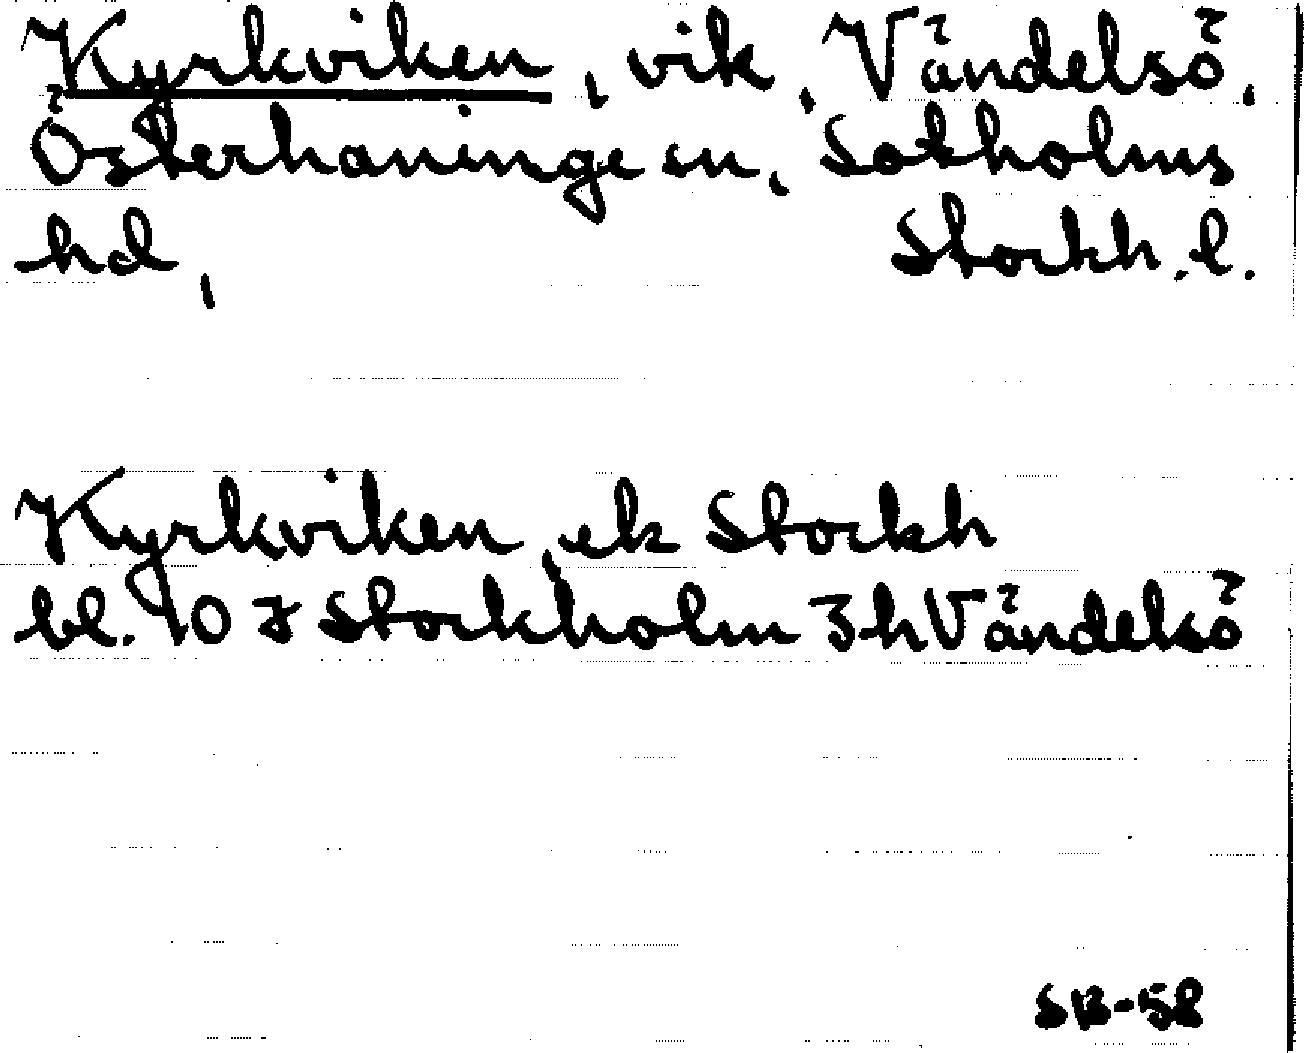 Kyrkviken, vik, Vändelsö,
Österhaninge sn, Sotholms
hd, Stockh. l.
Kyrkviken, ek Stockh
bl. 10 I Stockholm 3h Vändelsö
SB-58